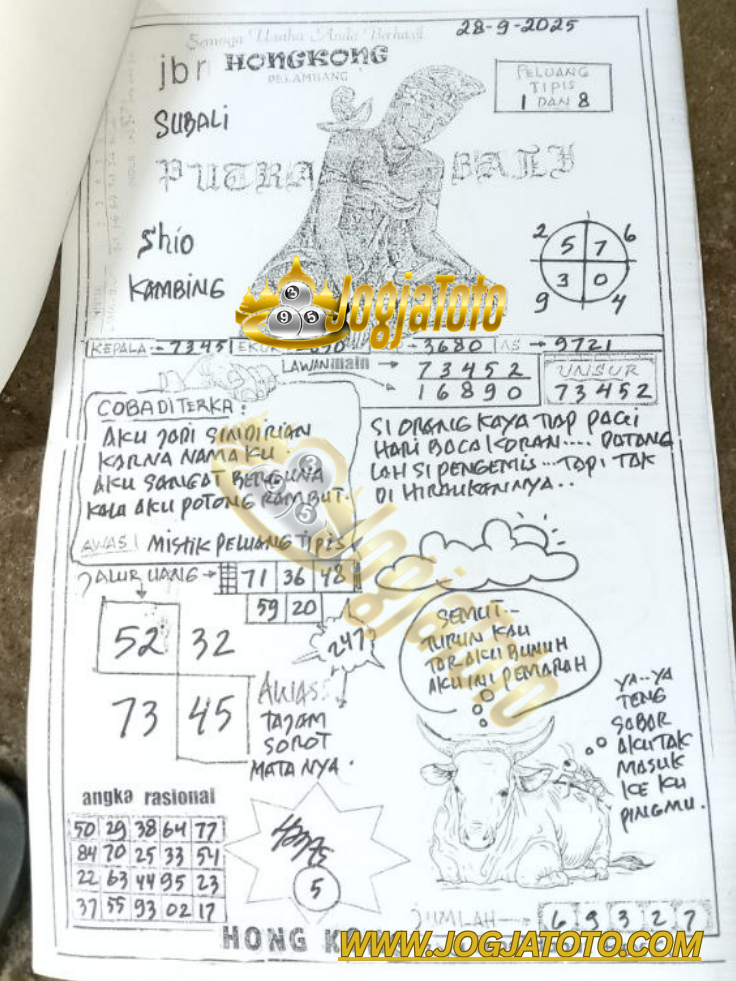 Semoga Usaha Anda Berhasil
28-9-2025
jbr HONGKONG
PELAMBANG
PELUANG
TIPIS
1 DAN 8
SUBALI
PUTRA BALI
Shio
KAMBING
2 5 7 6
9 3 0 4
JogjaToto
KEPALA :- 73451 EKOR 3680 AS → 9721
LAWAN main → 73452
16890
UNSUR
73452
COBA DITERKA :
AKU JADI SINDIRIAN
KARNA NAMAKU
AKU SANGAT BERGUNA
KALA AKU POTONG RAMBUT.
AWAS! MISTIK PELUANG TIPIS
SI ORANG KAYA TIAP PAGI
HARI BACA KORAN.... DATANG
LAH SI PENGEMIS ... TAPI TAK
DI HIRAUKANNYA..
JALUR UANG → 71 36 48
59 20
52 32
73 45
247
AWAS :
TAJAM
SOROT
MATANYA .
SEMUT...
TURUN KAU
TAR AKU BUNUH
AKU INI PEMARAH
YA...YA
TENG
SABAR
AKU TAK
MASUK
KE KU
PINGMU.
angka rasional
50 29 38 64 77
84 70 25 33 54
22 63 44 95 23
37 55 93 02 17
5
JUMLAH → 6 9 3 2 7
HONG KO
WWW.JOGJATOTO.COM